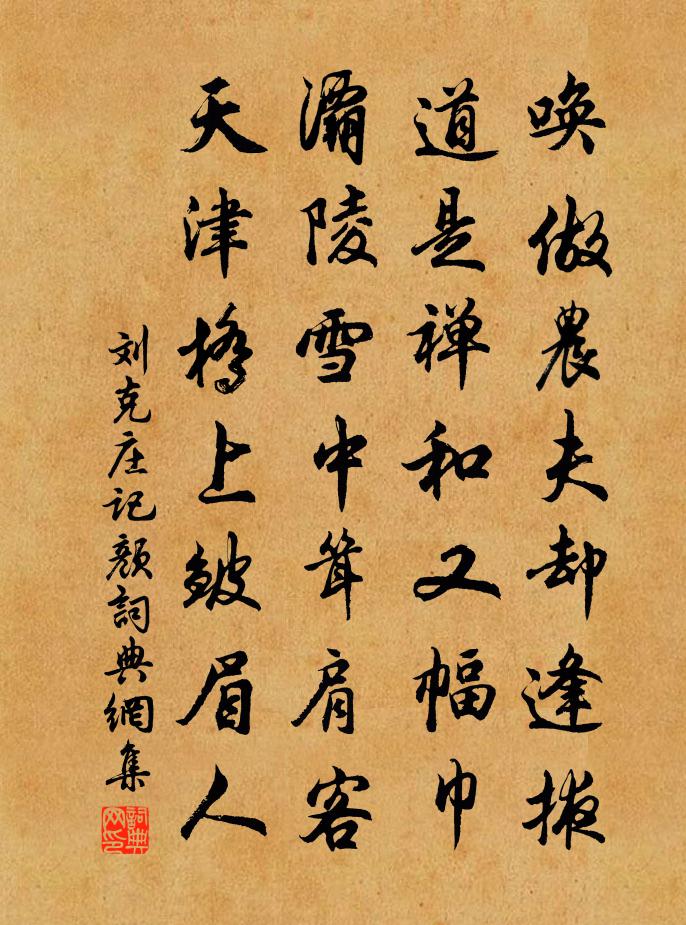 唤做農夫却逢掖
道是禅和又幅巾
灞陵雪中耸肩客
天津橋上皴眉人
刘克庄记颜詞典網集
詞典网印